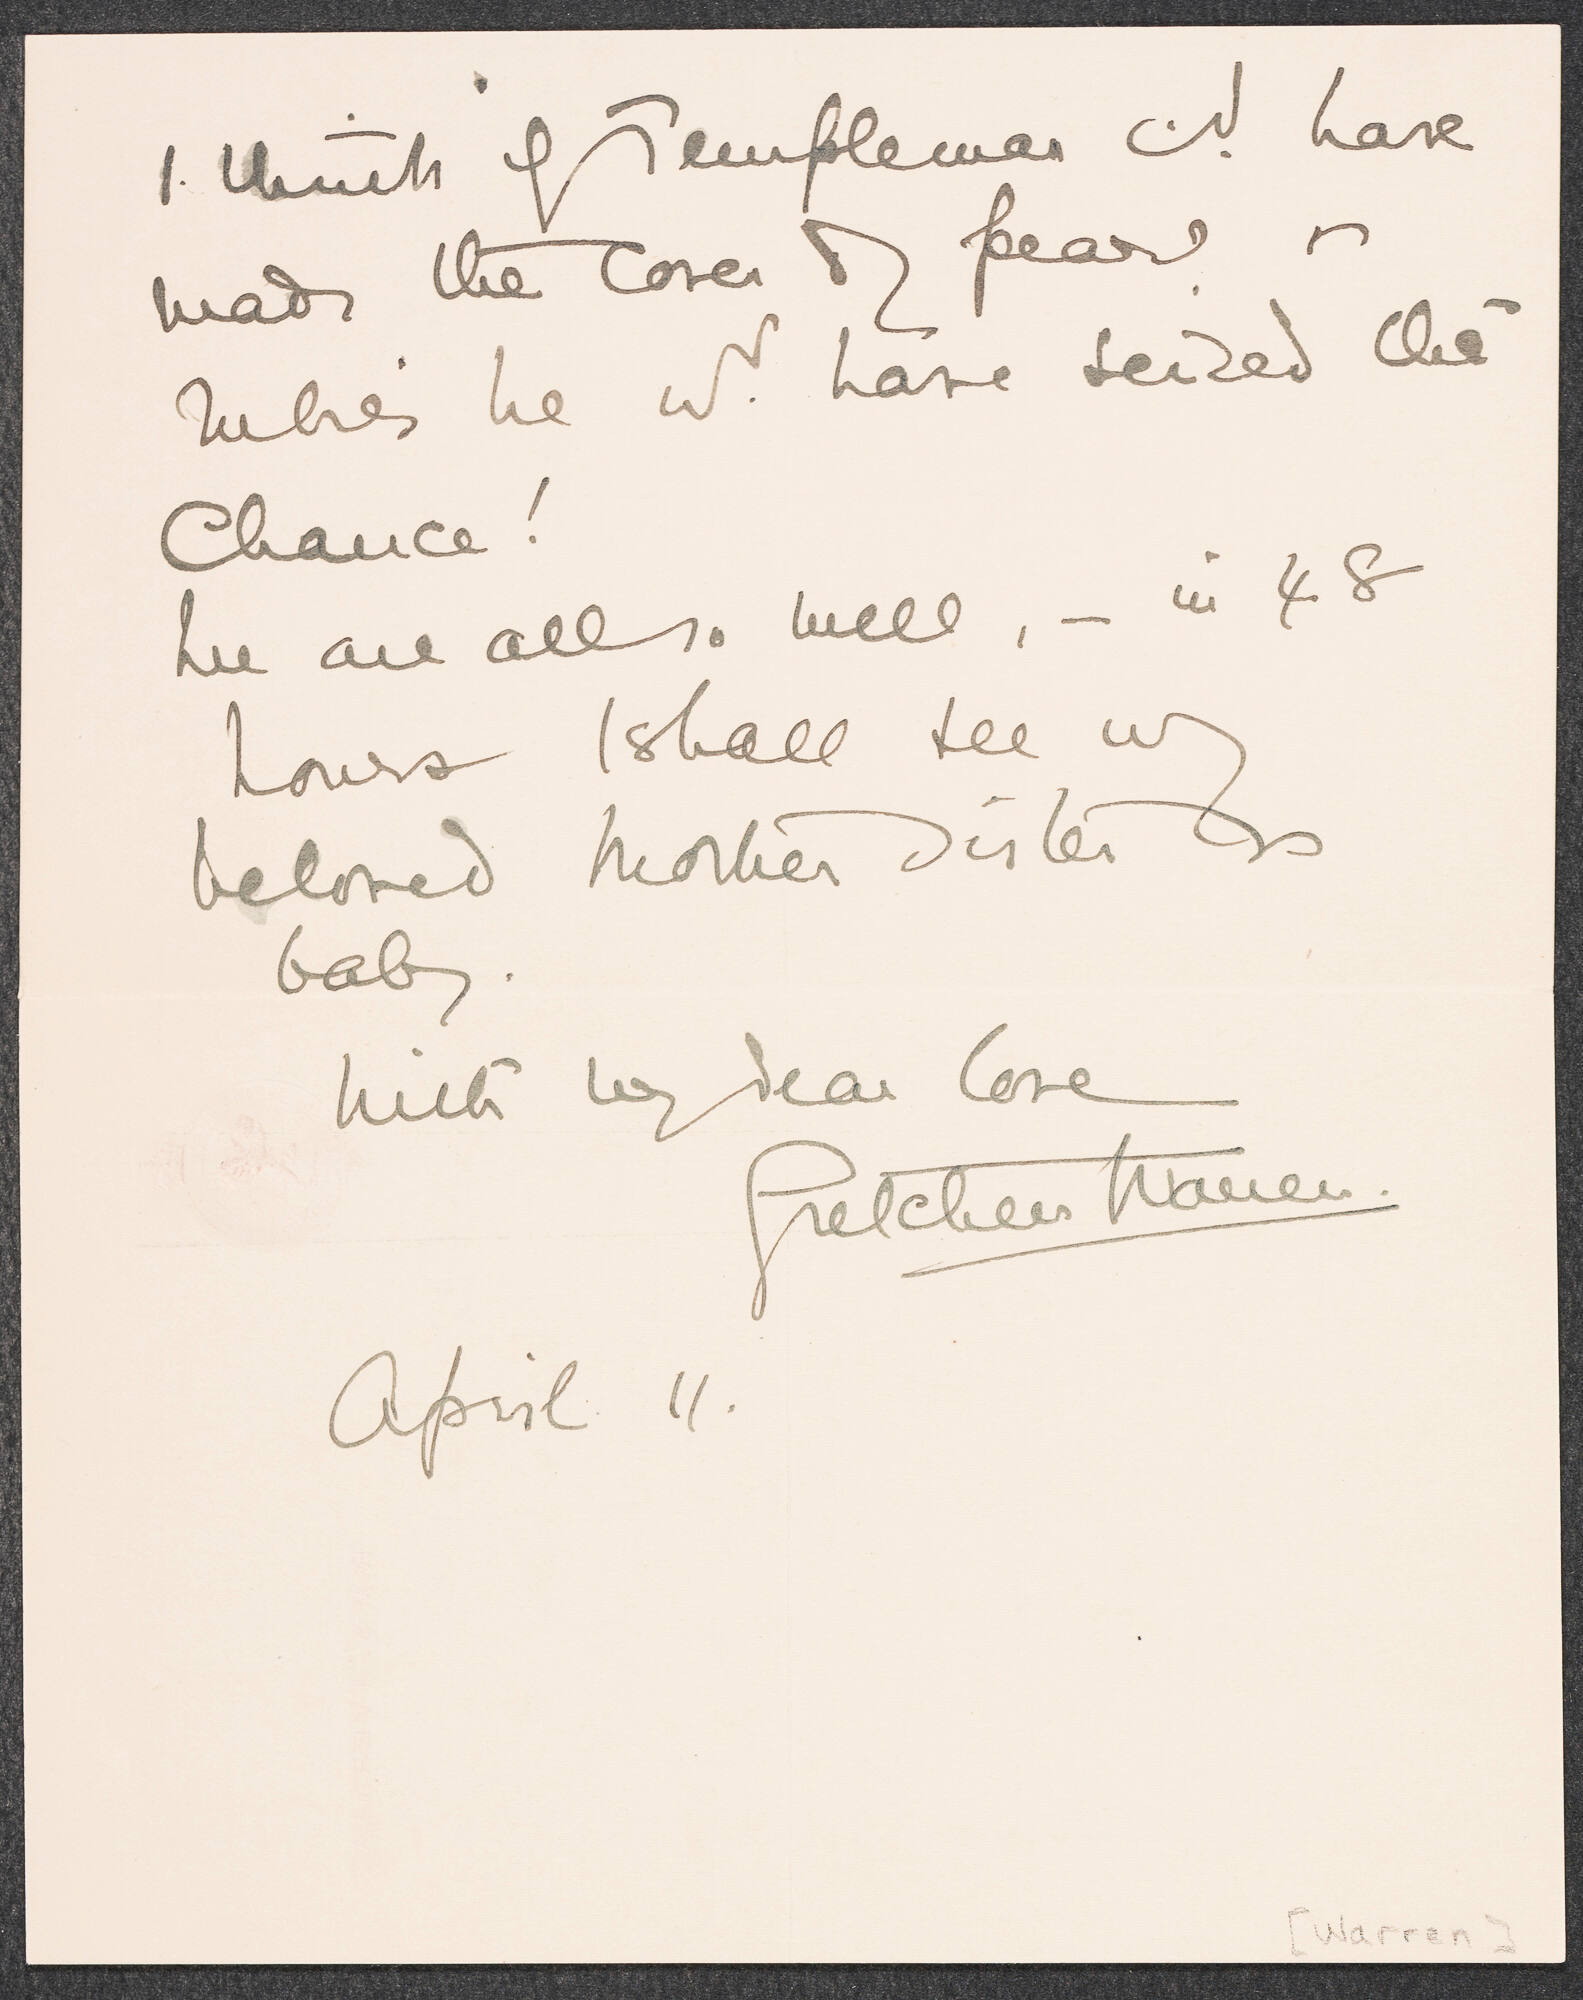 I think if Templeman cd. have
made the cover of pearls &
rubies he wd. have seized the
Chance!
We are all so well, – in 48
hours I shall see my
beloved Mother Sister &
baby.
With my dear love
Gretchen Warren.
April 11.
[Warren]